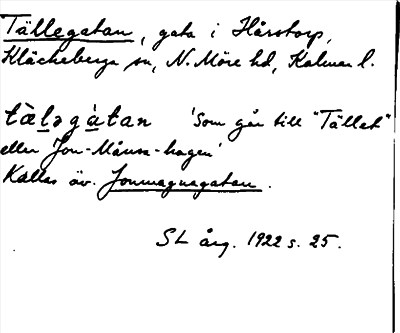 Tällegatan, gata i Hårstorp,
Klåckeberga sn, N. Möre hd, Kalmar l.
tàl̲əgátan 'som går till "Tället"
eller Jon-Månsa-hagen'
Kallas äv. Jonmagnagatan.
SL årg. 1922 s. 25.